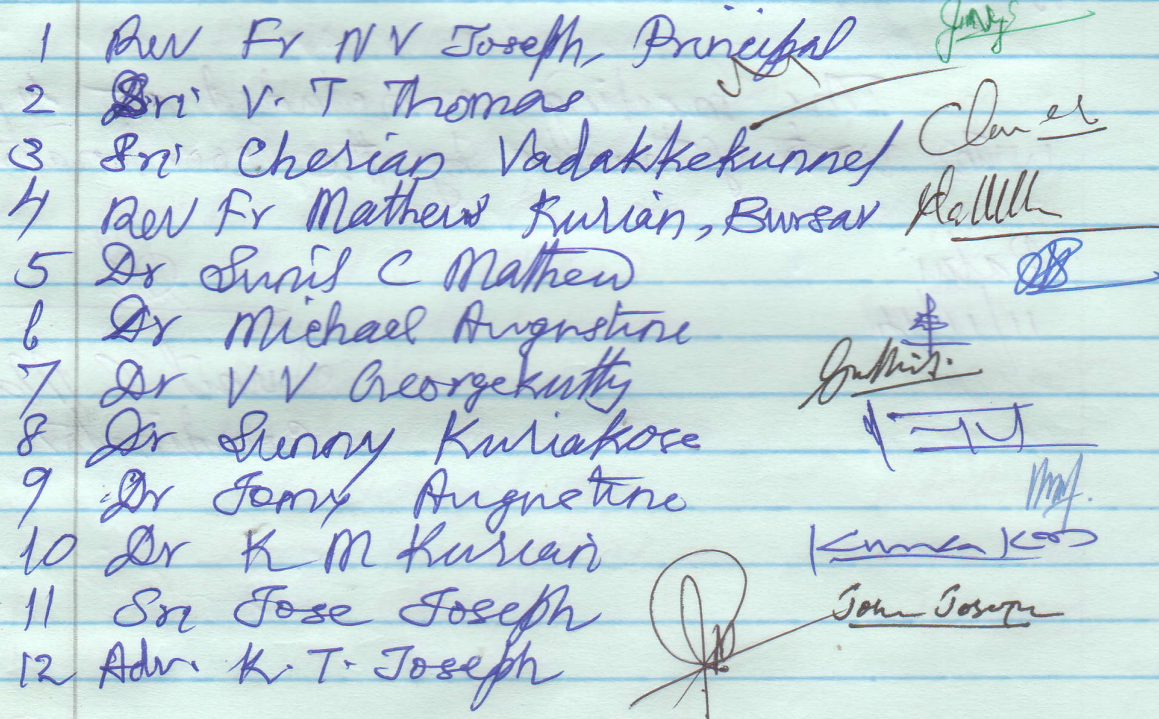 1 Rev Fr N V Joseph, Principal
2 Sri V. T Thomas
3 Sri Cherian Vadakkekunnel
4 Rev Fr Mathews Kurian, Bursar
5 Dr Sunil C Mathew
6 Dr Michael Augustine
7 Dr V V Georgekutty
8 Dr Sunny Kuriakose
9 Dr Jomy Augustine
10 Dr K M Kurian
11 Sri Jose Joseph John Joseph
12 Adv. K. T. Joseph